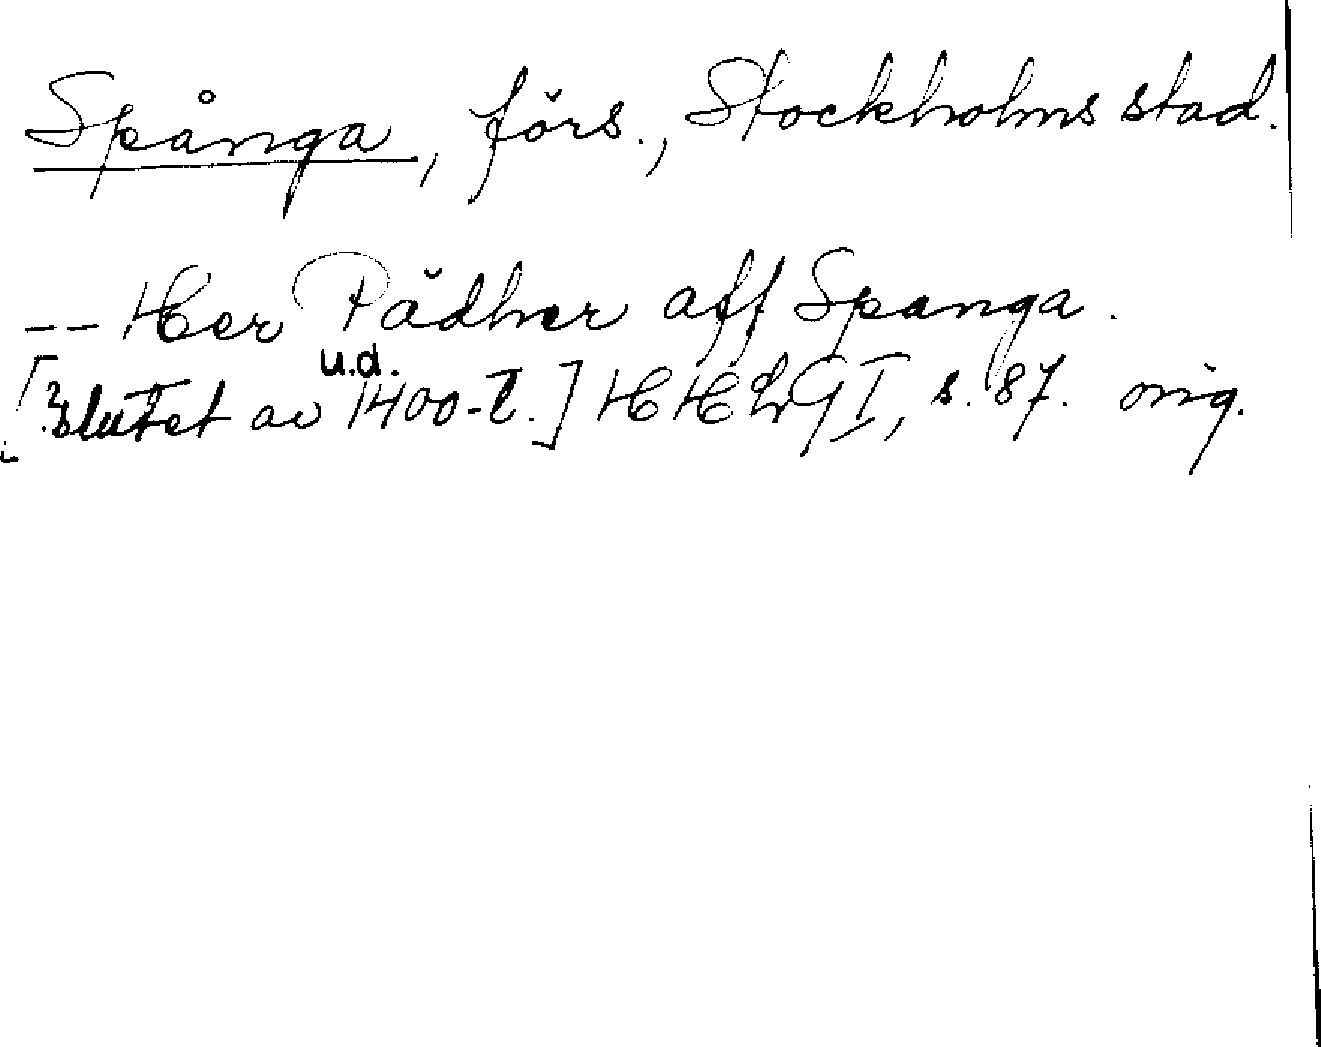 Spånga, förs., Stockholms stad.
-- Her Pädher aff Spanga.
u.d.
[slutet av 1400-t.] HHLG I, s. 87. orig.